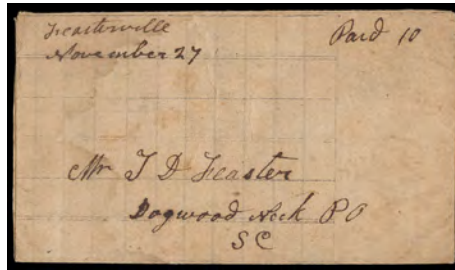 Feasterville
November 27
Paid 10
Mr T D Feaster
Dogwood Neck P O
S C